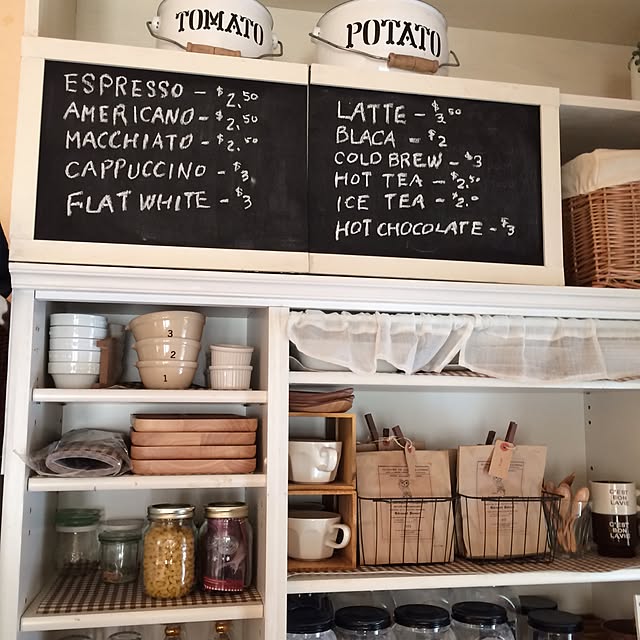 TOMATO
POTATO
ESPRESSO - $2.50
AMERICANO - $2.50
MACCHIATO - $2.50
CAPPUCCINO - $3
FLAT WHITE - $3
LATTE - $3.50
BLACA - $2
COLD BREW - $3
HOT TEA - $2.50
ICE TEA - $2.0
HOT CHOCOLATE - $3
3
2
1
C'EST
BON
LA VIE
C'EST
BON
LA VIE